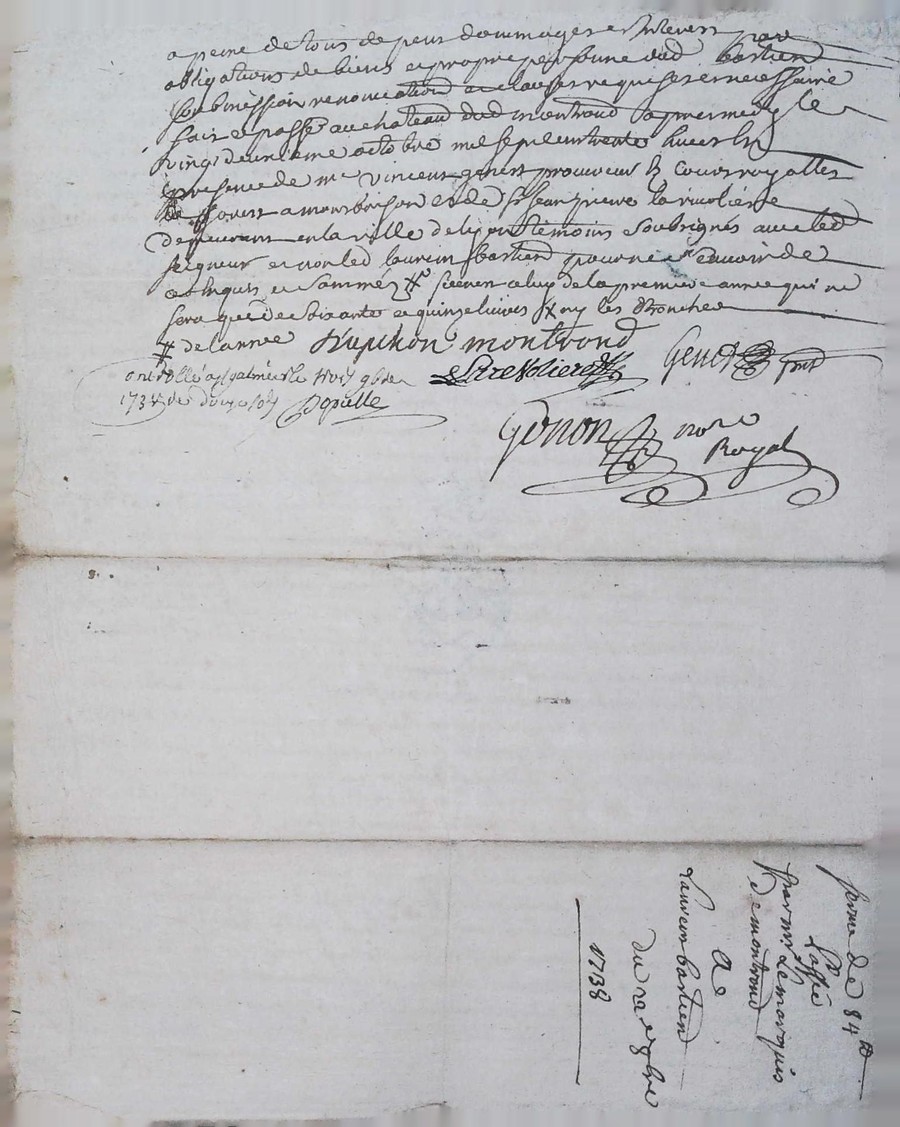 a peine de tous depens dommages et interests par
obligations de biens et propre personne dud bastien
soubmission renonciation et clauses requises et necessaire
fait et passé au chateau dud montrond apresmedy le
vingt deuxieme octobre mil sept cent trente huit en
presence de me vincent genest procureur es cours royalles
de forest a montbrison et de sr jean
demeurant en la ville de lyon temoins soubsignés avec led
seigneur et non led laurent bastien pour ne scavoir de
ce enquis et sommés # de la premiere année qui ne
sera que de soixante et quinze livres # ny les
# de l'année Dapchon montrond
Genest pnt
controllé a st galmier le trois 9bre
1738 douze sols
Genon nore
Royal
ferme de 84 #
passée
par mr le marquis
de montrond
a
Laurent bastien
du 22 8bre
1738